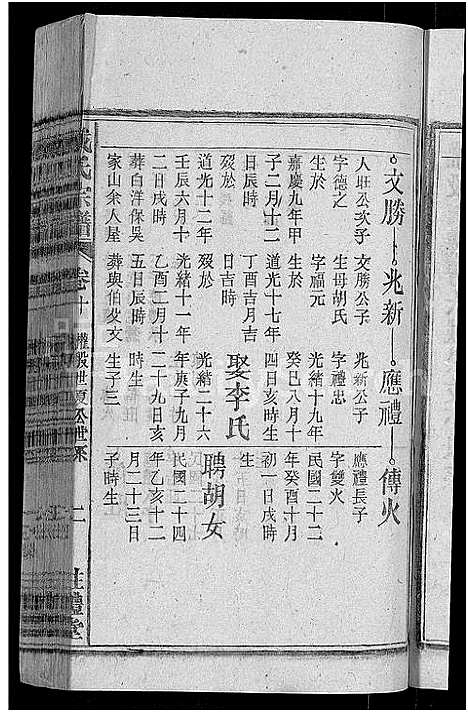 文勝 兆新 應禮 傳火
人旺公次子
字德之
生於
嘉慶九年甲
子二月十二
日辰時
歿於
道光十二年
壬辰六月十
二日戌時
葬白洋保吳
家山余人屋
文勝公子
生母胡氏
字福元
生於
道光十七年
丁酉吉月吉
日吉時
歿於
光緒十一年
乙酉二月十
五日辰時
葬與伯父文
兆新公子
字禮忠
光緒十九年
癸巳八月十
四日亥時生
娶李氏
光緒二十六
年庚子九月
二十九日亥
時生
生子三
應禮長子
字雙火
民國二十二
年癸酉十月
初一日戌時
生
聘胡女
民國二十四
年乙亥十二
月二十三日
子時生
戴氏宗譜
卷十
世系
二
注禮堂